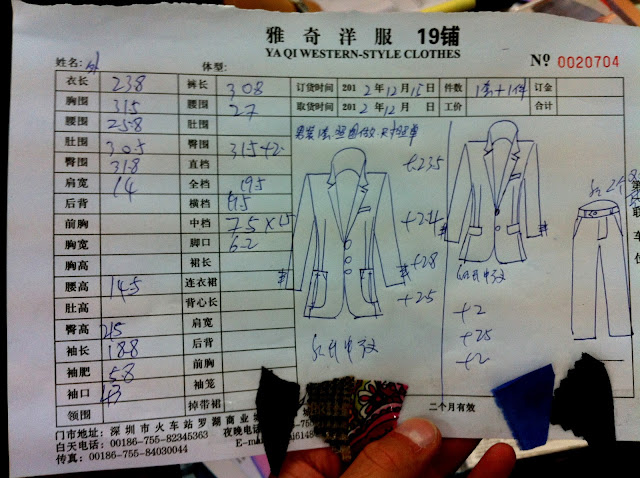 雅奇洋服 19铺
YA QI WESTERN-STYLE CLOTHES
姓名: 体型: Nº 0020704
衣长 238 裤长 308 订货时间 2012年12月15日 件数 1套+1件 订金
胸围 315 腰围 27 取货时间 2012年12月 日 工价 合计
腰围 258 肚围
肚围 305 臀围 315+2
臀围 318 直档
肩宽 14 全档 195
后背 横档
前胸 中档 75×
胸宽 脚口 62
胸高 裙长
腰高 145 连衣裙
肚高 背心长
臀高 肩宽
袖长 188 后背
袖肥 58 前胸
袖口 袖笼
领围 掉带裙
+235
+28
+25
+2
+25
+2
二个月有效
门市地址:深圳市火车站罗湖商业城
白天电话:00186-755-82345363 夜晚电
传真:00186-755-84030044 E-ma